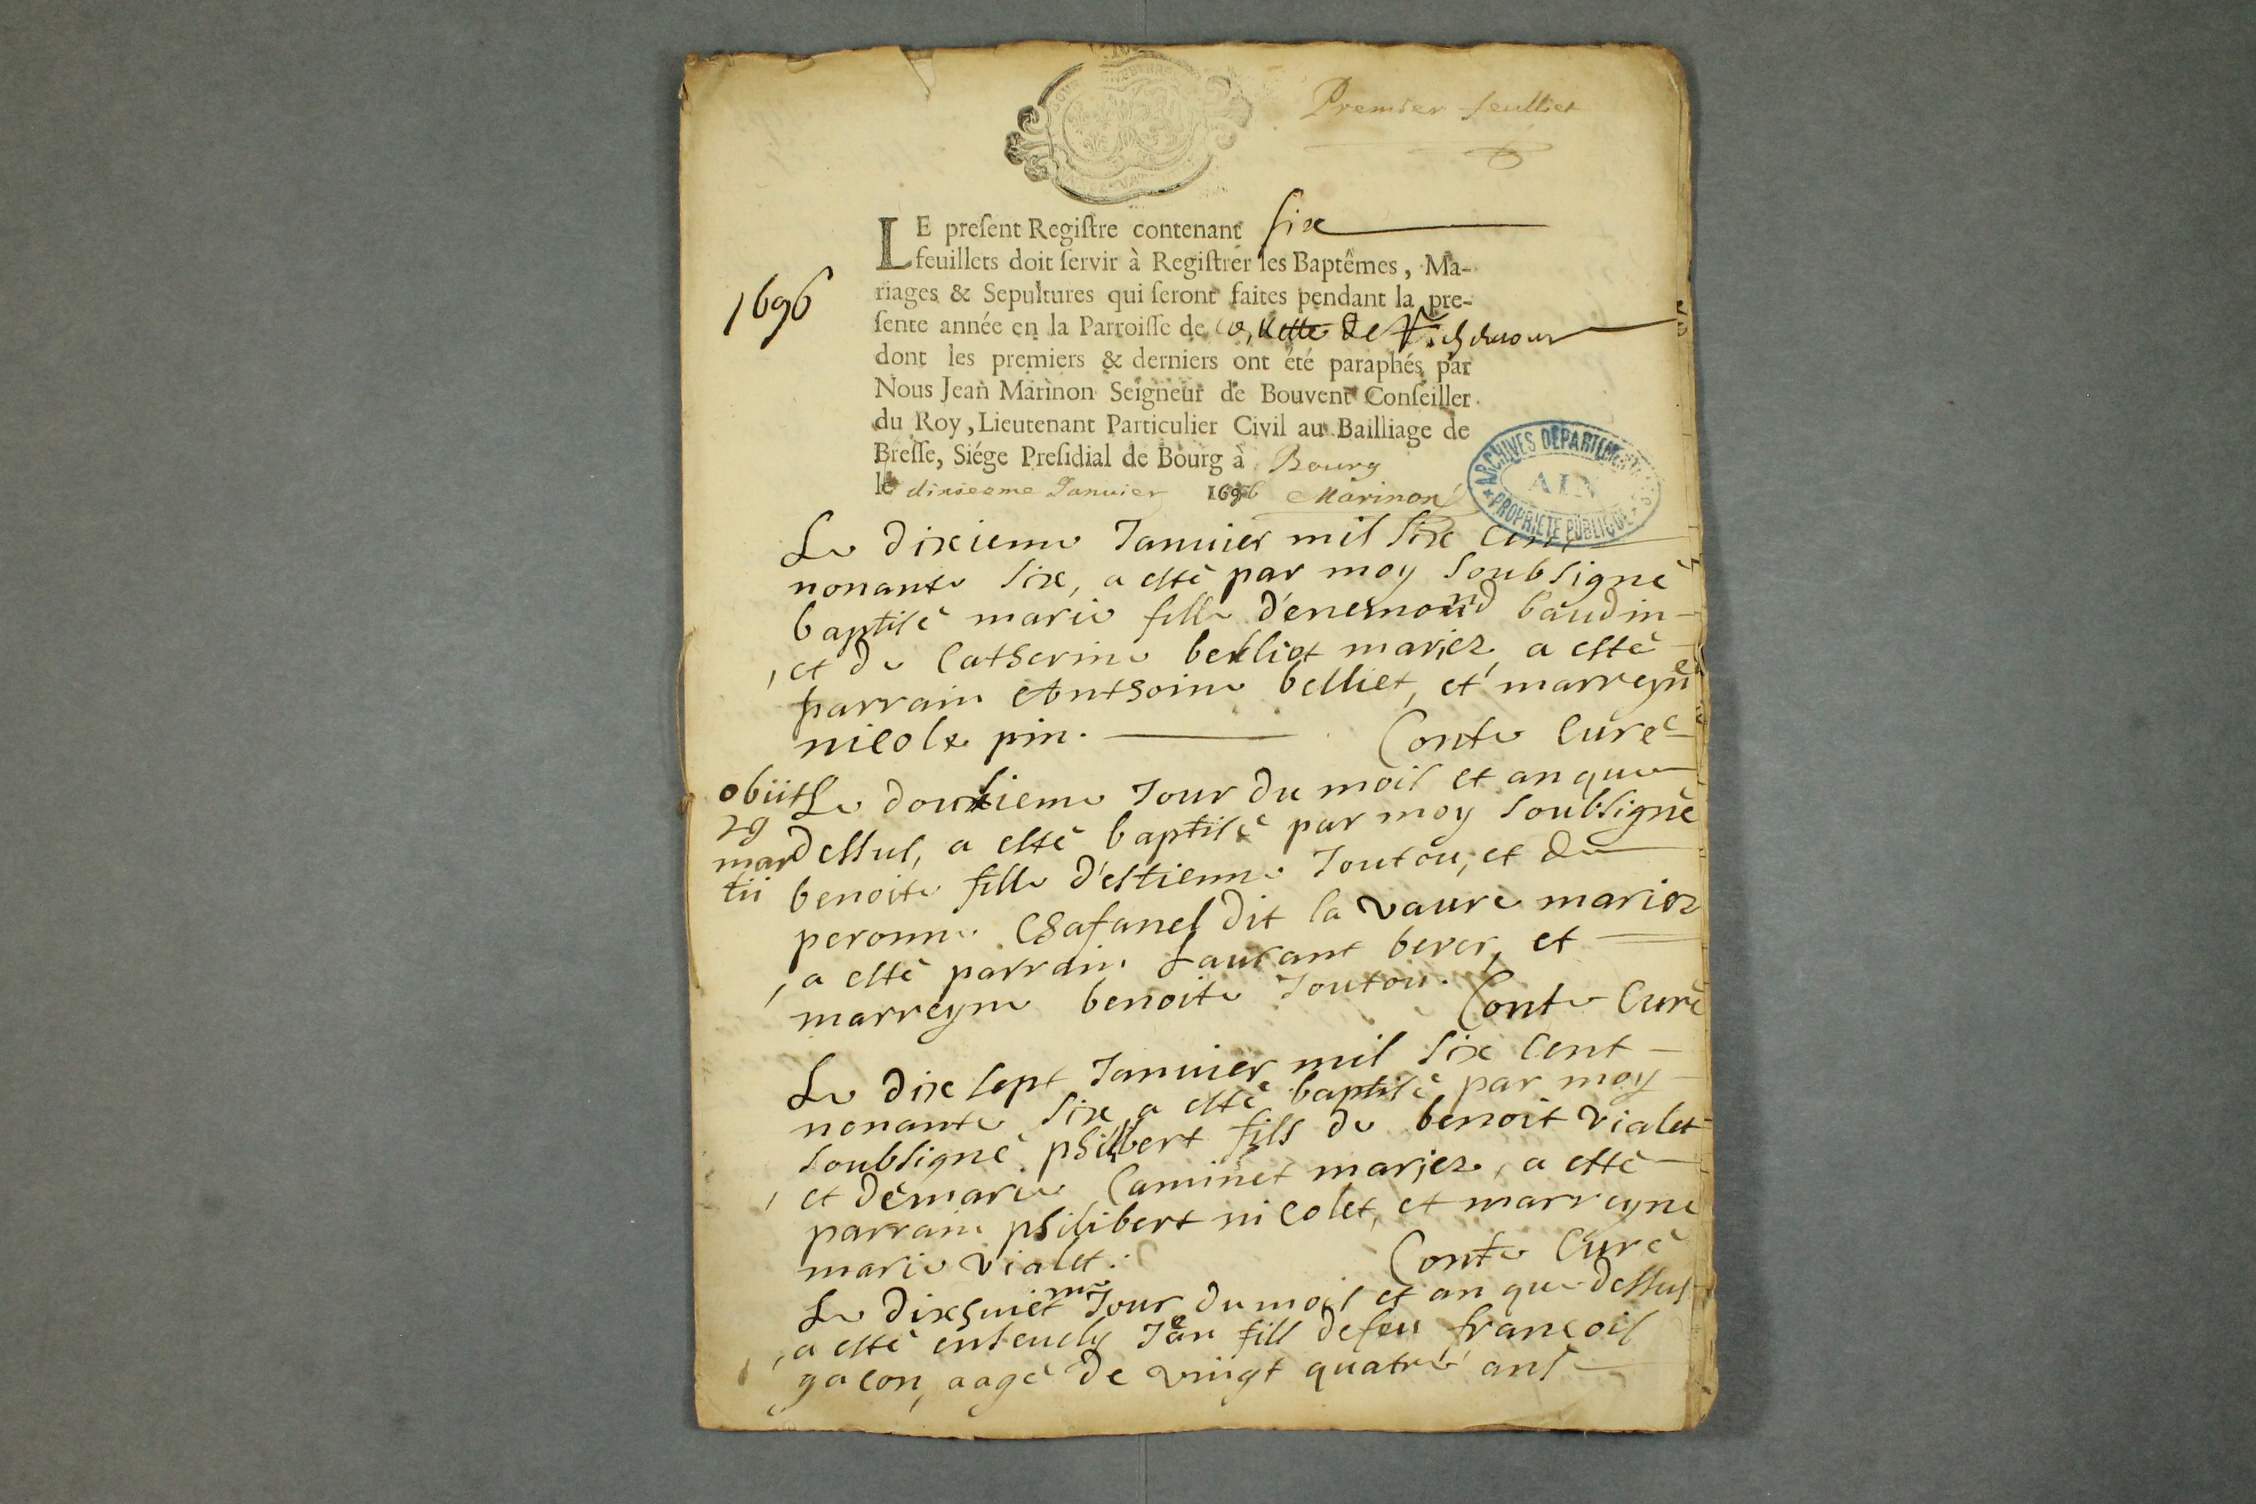 Premier feulliet
LE preſent Regiſtre contenant six
feuillets doit ſervir à Regiſtrer les Baptêmes, Ma-
riages & Sepultures qui ſeront faites pendant la pre-
1696
ſente année en la Parroiſſe de
dont les premiers & derniers ont été paraphés par
Nous Jean Marinon Seigneur de Bouvent Conſeiller
du Roy, Lieutenant Particulier Civil au Bailliage de
Breſſe, Siége Preſidial de Bourg à Bourg
le dixieeme Januier 1696 Marinon
ARCHIVES DEPARTEMENTALES
AIN
PROPRIETE PUBLIQUE
Le dixieme Januier mil six cent
nonante six, a esté par moy soubsigné
baptisé marie fille d'enemond baudin
et de Catherine belliet mariez, a esté
parrain Anthoine belliet, et marreyne
nicole pin. Conte Curé
obiit
29
mar
tii
Le douzieme Jour du mois et an que
dessus, a esté baptisé par moy soubsigné
benoite fille d'estienne Joutou, et de
peronne Chafanel dit la vaure mariez
a esté parrain Laurant berer, et
marreyne benoite Joutou. Conte Curé
Le dix sept Januier mil six cent
nonante six a esté baptisé par moy
soubsigné philibert fils de benoit vialet
et de marie Caminet mariez, a esté
parrain philibert nicolet, et marreyne
marie vialet. Conte Curé
Le dixhuietme Jour du mois et an que dessus
a esté enseuely Jean fils de feu françois
gacon, aagé de vingt quatre ans